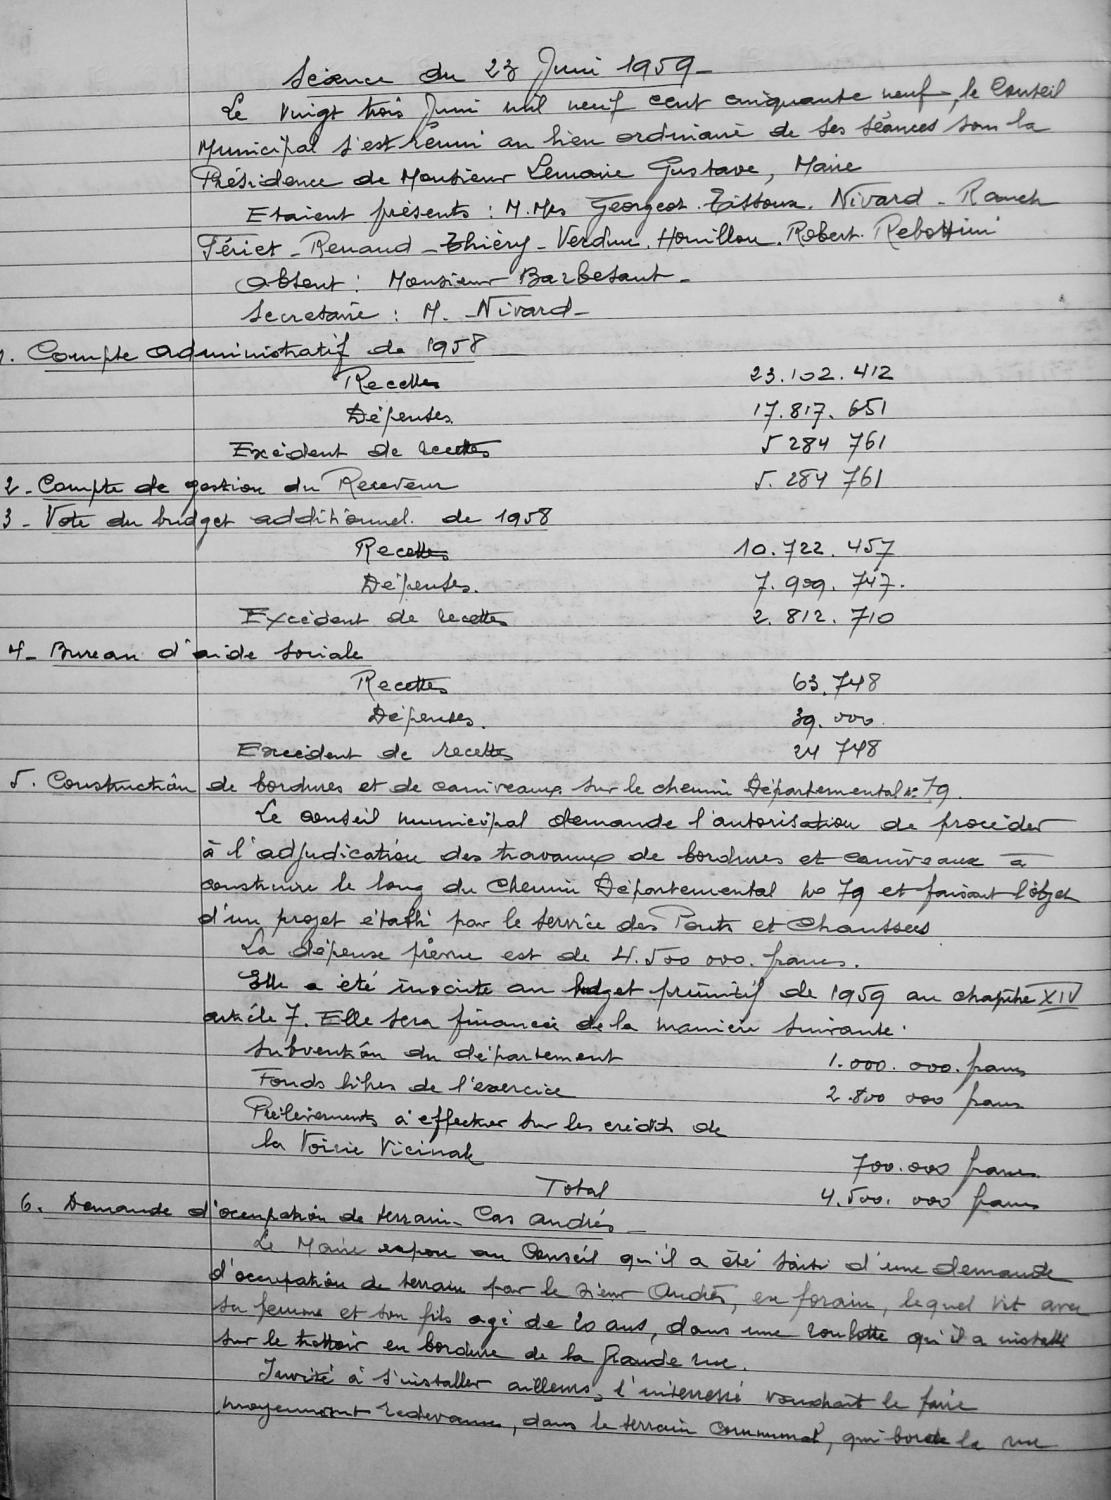 Séance du 23 Juin 1959_
Le vingt trois Juin mil neuf cent cinquante neuf, le Conseil
Municipal s'est réuni au lieu ordinaire de ses séances sous la
Présidence de Monsieur Lemoine Gustave, Maire
Etaient présents : M.Mrs Georgeot. Tissoux. Nivard - Rauch
Fériet - Renaud - Thiéry - Verdun. Houillon. Robert. Rebottini
Absent : Monsieur Barbesant -
Secrétaire : M. - Nivard -
1. Compte administratif de 1958
Recettes 23.102.412
Dépenses. 17.817.651
Excédent de recettes 5 284 761
2 - Compte de gestion du Receveur 5. 284 761
3 - Vote du budget additionnel. de 1958
Recettes 10.722.457
Dépenses. 7.909.747.
Excédent de recettes 2.812.710
4 - Bureau d'aide sociale
Recettes 63.748
Dépenses. 39.000.
Excédent de recettes 24 748
5. Construction de bordures et de caniveaux sur le chemin Départemental n° 79.
Le conseil municipal demande l'autorisation de procéder
à l'adjudication des travaux de bordures et caniveaux à
construire le long du Chemin Départemental No 79 et faisant l'objet
d'un projet établi par le service des Ponts et Chaussées
La dépense prévue est de 4.500 000. francs.
Elle a été inscrite au budget primitif de 1959 au chapitre XIV
article 7. Elle sera financée de la manière suivante.
Subvention du département 1.000.000. francs
Fonds libres de l'exercice 2.800 000 francs
Prélèvements à effectuer sur les crédits de
la Voirie Vicinale 700.000 francs
Total 4.500.000 francs
6. Demande d'occupation de terrain - Cas Andrés -
Le Maire expose au Conseil qu'il a été saisi d'une demande
d'occupation de terrain par le sieur Andrés, ex forain, lequel vit avec
sa femme et son fils agé de 20 ans, dans une roulotte qu'il a installé
sur le trottoir en bordure de la grande rue.
Invité à s'installer ailleurs, l'intéressé voudrait le faire
moyennant redevance, dans le terrain communal, qui borde la rue